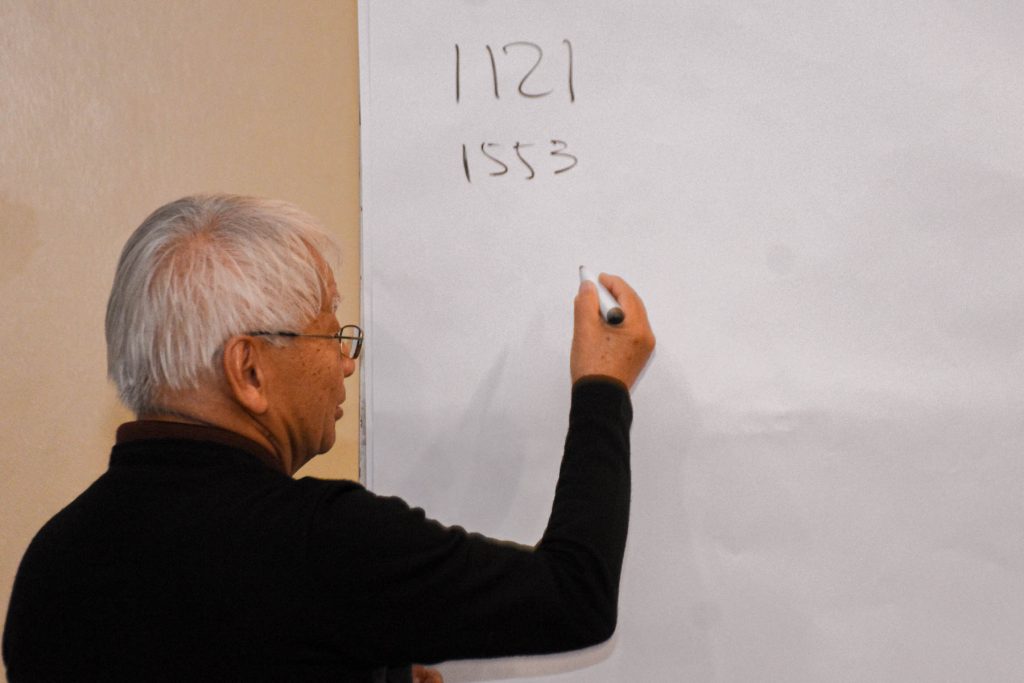 1121
1553